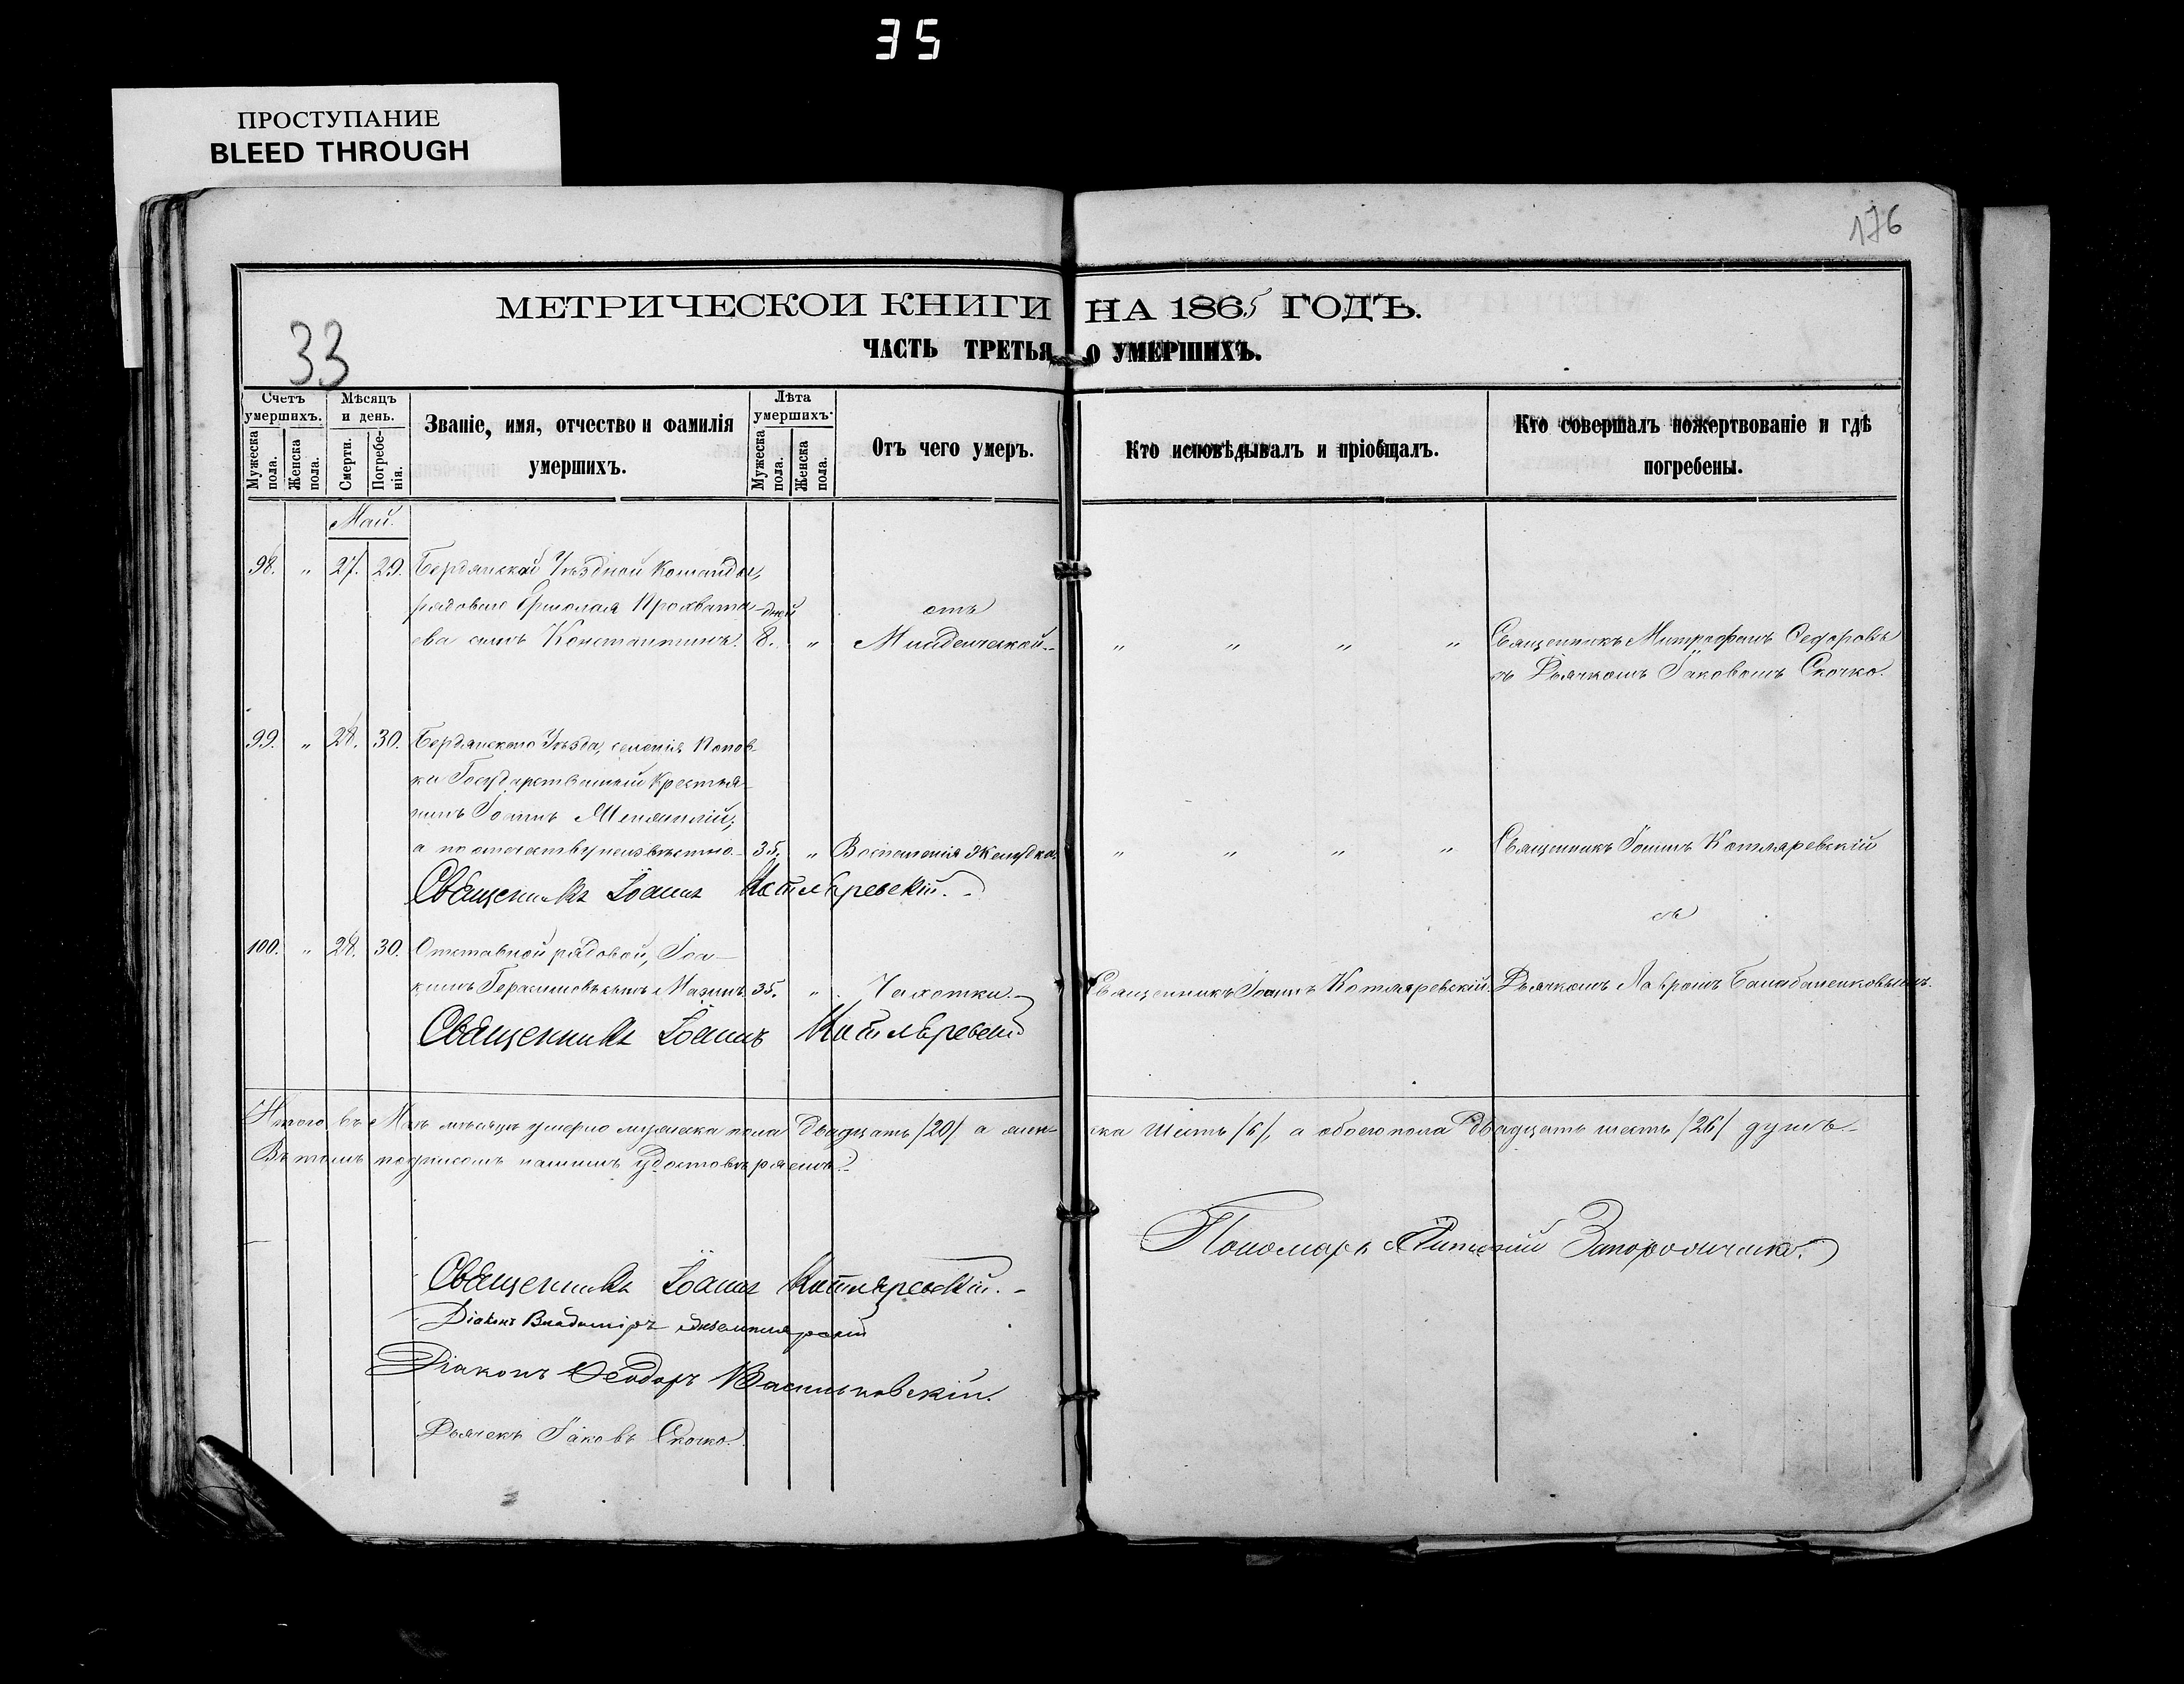 35
ПРОСТУПАНИЕ
BLEED THROUGH
176
33
МЕТРИЧЕСКОЙ КНИГИ НА 1865 ГОДЪ.
ЧАСТЬ ТРЕТЬЯ О УМЕРШИХЪ.
Счетъ умершихъ.
Мужеска пола.
Женска пола.
Мѣсяцъ и день.
Смерти.
Погребенія.
Званіе, имя, отчество и фамилія умершихъ.
Лѣта умершихъ.
Мужеска пола.
Женска пола.
Отъ чего умеръ.
Кто исповѣдывалъ и пріобщалъ.
Кто совершалъ пожертвованіе и гдѣ погребены.
Май.
98. " 27. 29. Бердянской Уѣздной Команды,
рядоваго Ермолая Прохвата- дней отъ
ева сынъ Константинъ. 8. " Младенческой. " " " " Священникъ Митрофанъ Ѳедоровъ
съ Дьячкомъ Іаковомъ Скочко.
99. " 28. 30. Бердянскаго Уѣзда, селенія Попов-
ки Государственный Крестья-
нинъ Іоаннъ
а по отечеству неизвѣстно. 35. " Воспаленія Желудка. " " " " Священникъ Іоаннъ Котляревскій
Священникъ Іоаннъ Котляревскій.
съ
100. " 28. 30. Отставной рядовой, Іоа-
кимъ Герасимовъ сынъ 35. " Чахотки. Священникъ Іоаннъ Котляревскій. Дьячкомъ Лавромъ Балабаненковымъ.
Священникъ Іоаннъ Котляревскій
Итого въ Маѣ мѣсяцѣ умерло мужеска пола Двадцать /20/ а жен- ска Шесть /6/, а обоего пола Двадцать шесть /26/ душъ.
Въ томъ подписомъ нашимъ удостовѣряемъ.
Пономарь
Священникъ Іоаннъ Котляревскій.
Діаконъ Владиміръ
Діаконъ Ѳеодоръ Васильковскій.
Дьячекъ Іаковъ Скочко.